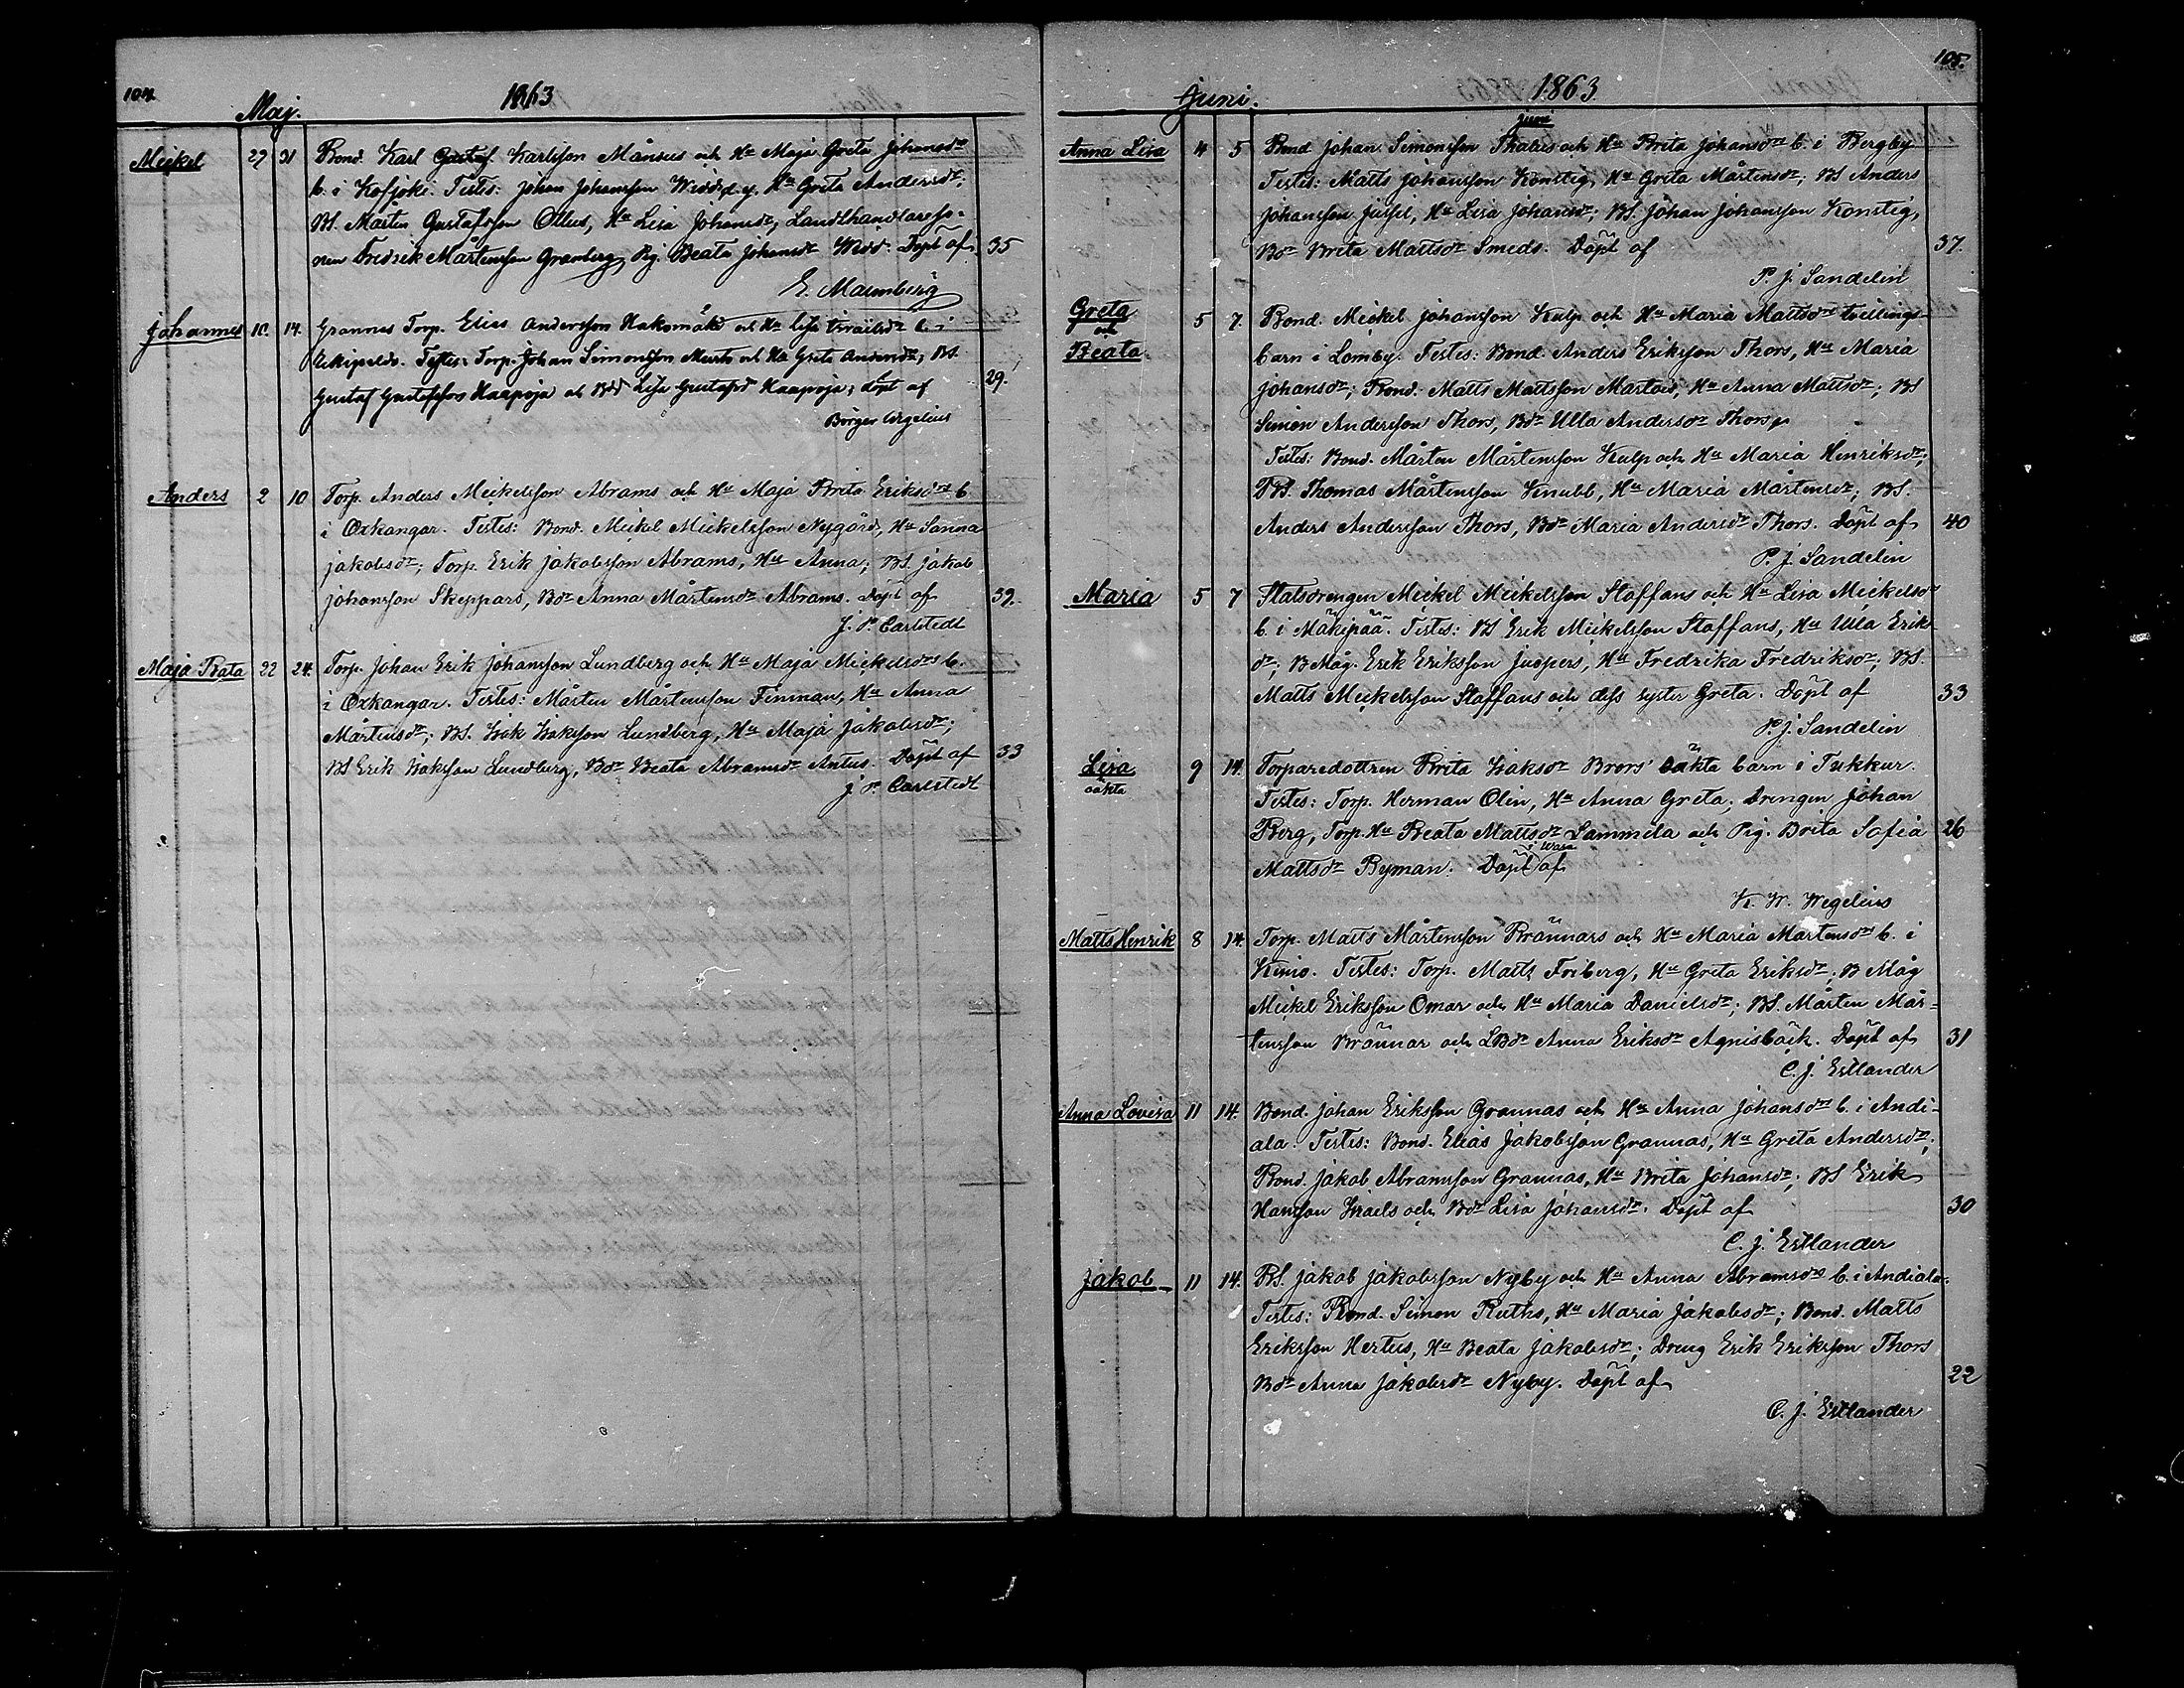 104.
Maj. 1863
Meickel 29 31 Bond. Karl Gustaf Karlsson Månsus och Hu Maja Greta Johansdr
b. i Kofjoki. Testes: Johan Johansson Widd, Hu Greta Andersdr;
BS. Martin Gustafsson Ollus, Hu Lisa Johansdr, Landthandlareso-
nen Fredrik Mårtensson Granberg, Pig. Beata Johansdr Widd. Döpt af 35
E. Malmberg
Johannes 10. 14. Grannas Torp. Elias Andersson Hakomäki och Hu Lisa Israelsdr b. i
Ikipeldo. Testes: Torp. Johan Simonsson Murto och Hu Greta Andersdr, BS.
Gustaf Gustafsson Haapoja och Bdr Lisa Gustafsdr Haapoja; döpt af 29.
Börger Wegelius
Anders 2 10 Torp. Anders Meickelsson Abrams och Hu Maja Brita Eriksdrs b.
i Oxkangar. Testes: Bond. Meickel Meickelsson Nygård, Hu Sanna
Jakobsdr; Torp. Erik Jakobsson Abrams, Hu Anna; BS. Jakob
Johansson Skeppars, Bdr Anna Mårtensdr Abrams. Döpt af 39.
J. P. Carlstedt
Maja Beata 22 24. Torp. Johan Erik Johansson Lundberg och Hu Maja Mickelsdrs b.
i Oxkangar. Testes: Mårten Mårtensson Finnman, Hu Anna
Mårtensdr; BS. Isak Isaksson Lundberg, Hu Maja Jakobsdr;
BS Erik Isaksson Lundberg, Bdr Beata Abramsdr Antus. Döpt af 33
J. P. Carlstedt
105.
Juni. 1863
Anna Lisa 4 5 Bond Johan Simonsson Thalus och Hu Brita Johansdrs b. i Bergby
Testes: Matts Johansson Konstig, Hu Greta Mårtensdr; BS Anders
Johansson Jussil, Hu Lisa Johansdr; BS. Johan Johansson Konstig,
Bdr Brita Mattsdr Smeds. Döpt af 37.
P. J. Sandelin
Greta
och
Beata. 5 7. Bond. Meickel Johansson Kulp och Hu Maria Mattsdrs tvillings-
barn i Lomby. Testes: Bond. Anders Eriksson Thors, Hu Maria
Johansdr; Bond. Matts Mattsson Martois, Hu Anna Mattsdr; BS
Simon Andersson Thors, Bdr Ulla Andersdr Thors.
Testes: Bond. Mårten Mårtensson Kulp och Hu Maria Henriksdr;
BS. Thomas Mårtensson Knubb, Hu Maria Mårtensdr; BS.
Anders Andersson Thors, Bdr Maria Andersdr Thors. Döpt af 40
P. J. Sandelin
Maria 5 7 Statsdrengen Meickel Meickelsson Staffans och Hu Lisa Meickelsdrs
b. i Mäkipää. Testes: BS Erik Meickelsson Staffans, Hu Ulla Eriks-
dr; B Måg. Erik Eriksson Juspers, Hu Fredrika Fredriksdr; BS.
Matts Meickelsson Staffans och dess syster Greta. Döpt af 33
P. J. Sandelin
Lisa
oäkta 9 14. Torparedottren Brita Isaksdr Brors' oäkta barn i Tukkur.
Testes: Torp. Herman Olin, Hu Anna Greta; Drengen Johan
Berg, Torp. Hu Beata Mattsdr Sammila och Pig. Brita Sofia 26
Mattsdr Byman. Döpt i Wasa af
K. W. Wegelius
Matts Henrik 8 14. Torp. Matts Mårtensson Brännars och Hu Maria Mårtensdrs b. i
Kimo. Testes: Torp. Matts Friberg, Hu Greta Eriksdr; B Måg
Meickel Eriksson Omar och Hu Maria Danielsdr; BS. Mårten Mår-
tensson Brännar och LBdr Anna Eriksdr Agnisbäck. Döpt af 31
C. J. Estlander
Anna Lovisa 11 14. Bond. Johan Eriksson Grannas och Hu Anna Johansdrs b. i Andi-
ala. Testes: Bond. Elias Jakobsson Grannas, Hu Greta Andersdr;
Bond. Jakob Abramsson Grannas, Hu Brita Johansdr; BS Erik
Hansson Israels och Bdr Lisa Johansdr. Döpt af 30
C. J. Estlander
Jakob 11 14. BS. Jakob Jakobsson Nyby och Hu Anna Abramsdrs b. i Andiala.
Testes: Bond. Simon Ruths, Hu Maria Jakobsdr; Bond. Matts
Eriksson Hertus, Hu Beata Jakobsdr; Dreng Erik Eriksson Thors
Bdr Anna Jakobsdr Nyby. Döpt af 22
C. J. Estlander